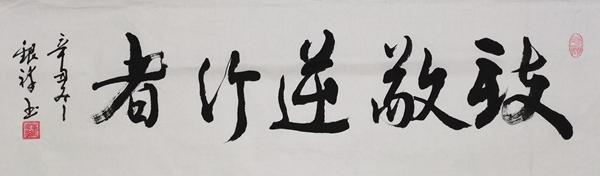 致敬逆行者
辛丑年
银祥书